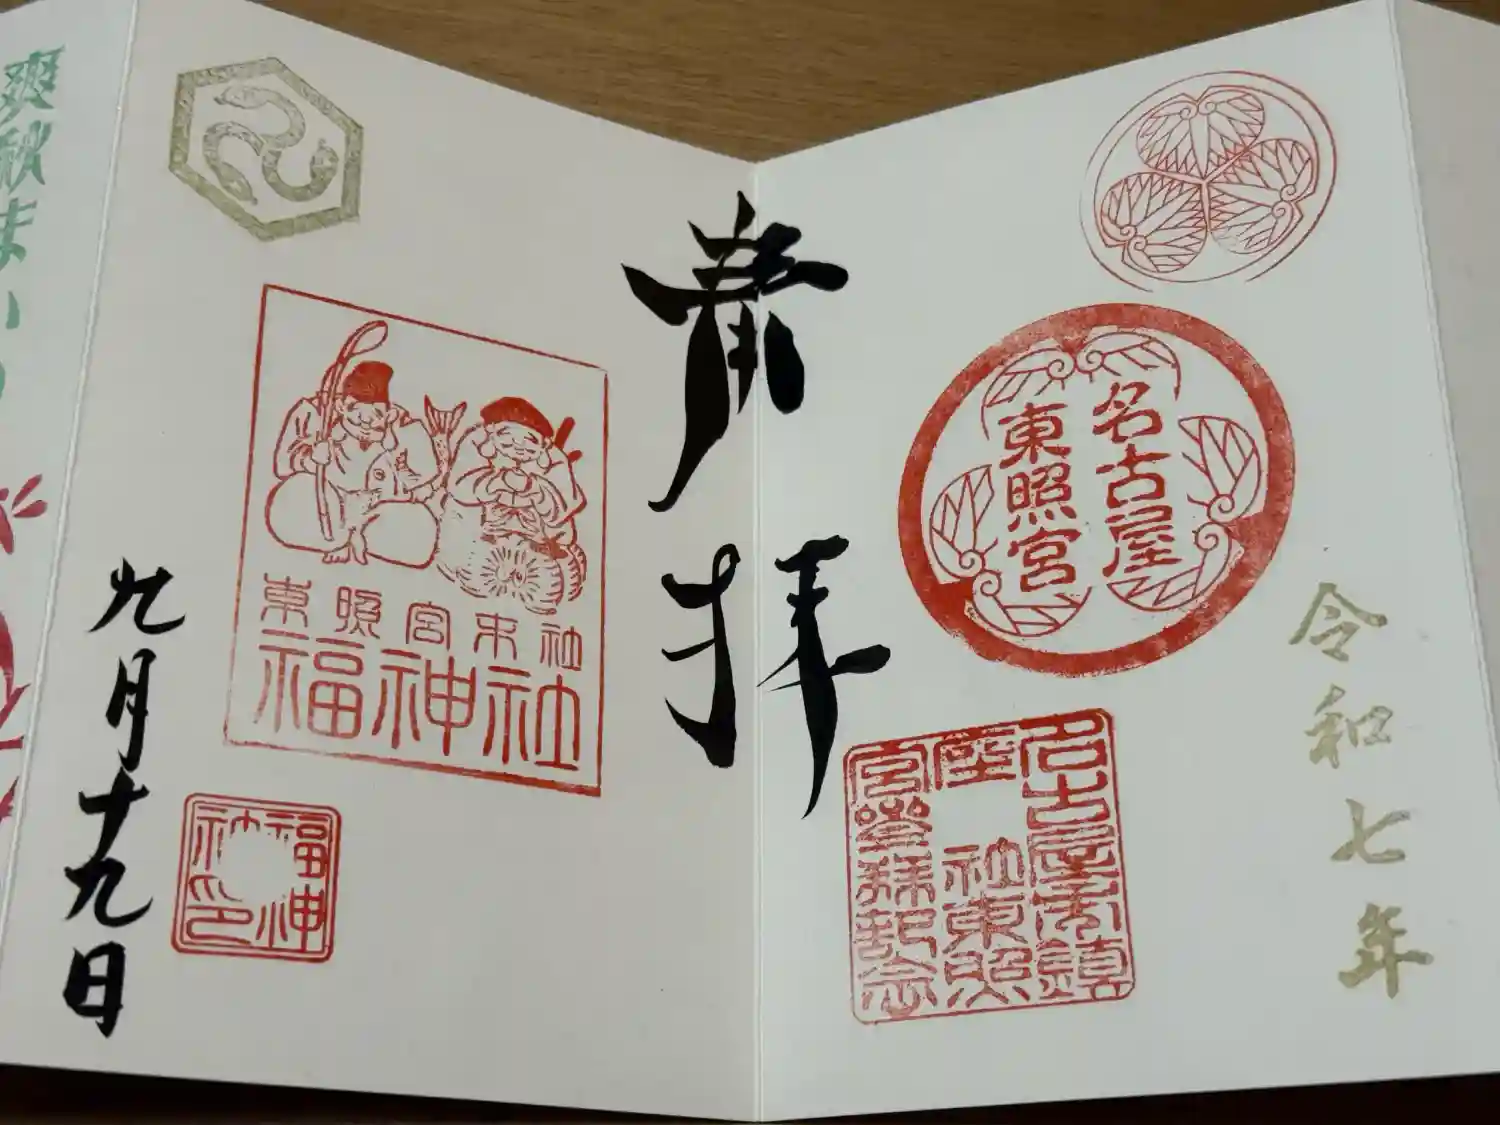 令和七年
名古屋
東照宮
名古屋市鎮
座 社東照
宮参拝記念
奉拝
東照宮末社
福神社
福神
社印
九月十九日
爽秋まいり